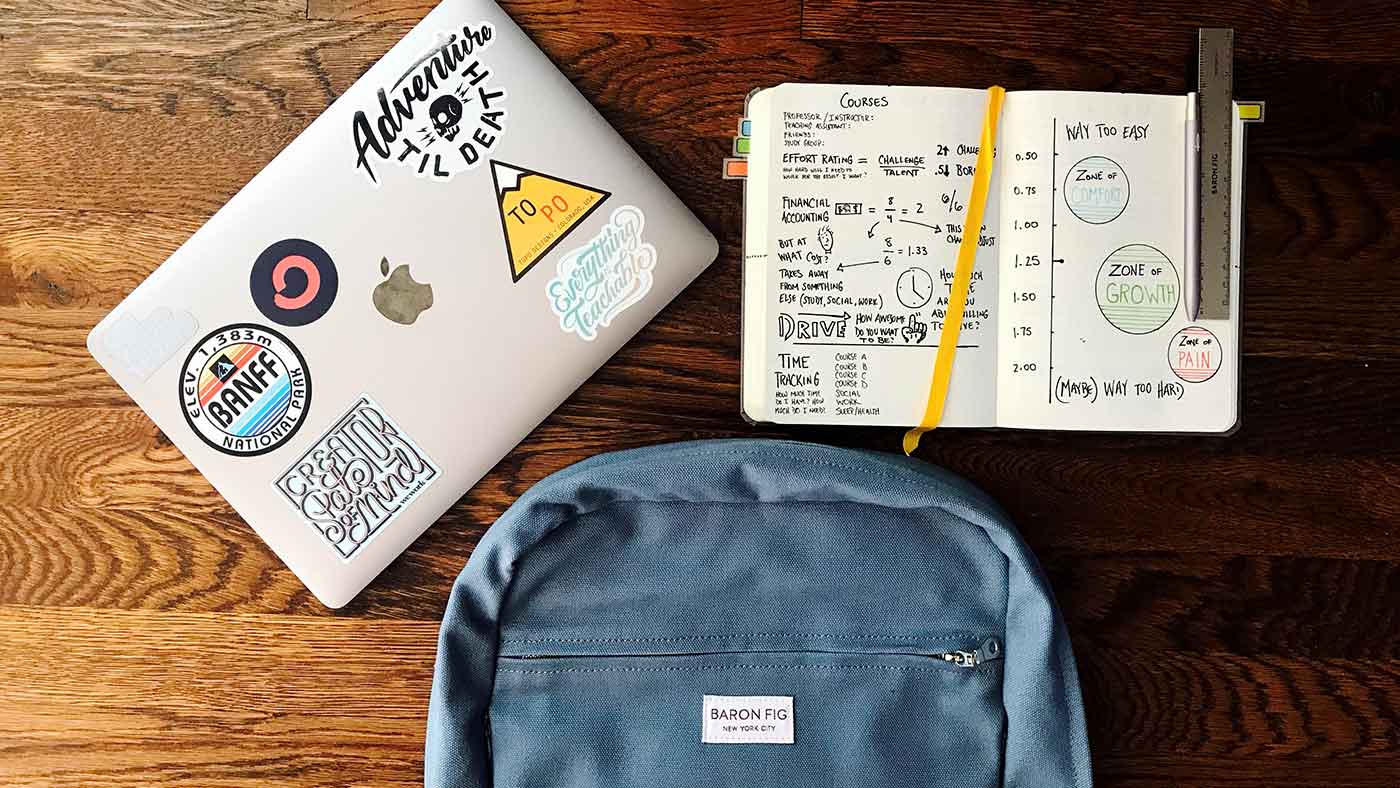 Adventure
'TIL DEATH
TO PO
TOPO DESIGNS • COLORADO, USA
Everything
is
Teachable
ELEV. 1,383m
BANFF
NATIONAL PARK
CREATOR
State
OF
Mind
wework
COURSES
PROFESSOR / INSTRUCTOR:
TEACHING ASSISTANT:
FRIENDS:
STUDY GROUP:
EFFORT RATING = CHALLENGE
TALENT
HOW HARD WILL I NEED TO
WORK FOR THE RESULT I WANT?
2↑
.5↓
FINANCIAL
ACCOUNTING
= 8/4 = 2
6/6
8/6 = 1.33
BUT AT
WHAT COST?
TAKES AWAY
FROM SOMETHING
ELSE (STUDY, SOCIAL, WORK)
DRIVE
HOW AWESOME
DO YOU WANT
TO BE?
TIME
TRACKING
HOW MUCH TIME
DO I HAVE? HOW
MUCH DO I NEED?
COURSE A
COURSE B
COURSE C
COURSE D
SOCIAL
WORK
SLEEP/HEALTH
WAY TOO EASY
0.50
0.75
1.00
1.25
1.50
1.75
2.00
ZONE OF
COMFORT
ZONE OF
GROWTH
ZONE OF
PAIN
(MAYBE) WAY TOO HARD
BARON FIG
BARON FIG
NEW YORK CITY